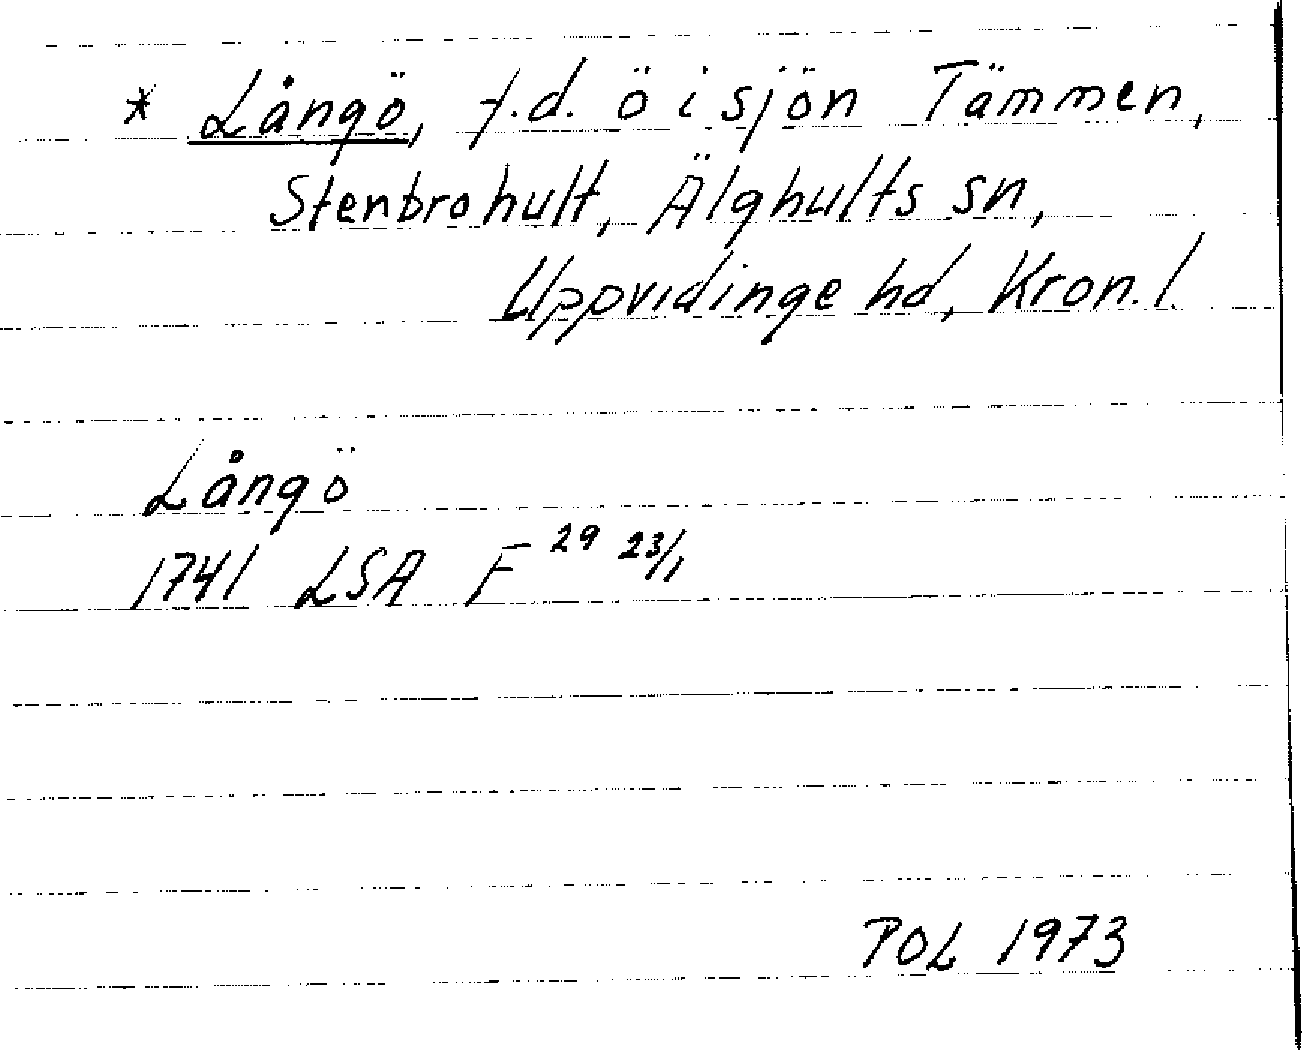 * Långö, f.d. ö i sjön Tämmen,
Stenbrohult, Älghults sn,
Uppvidinge hd, Kron. l.
Långö
1741 LSA F 29 23/1
POL 1973